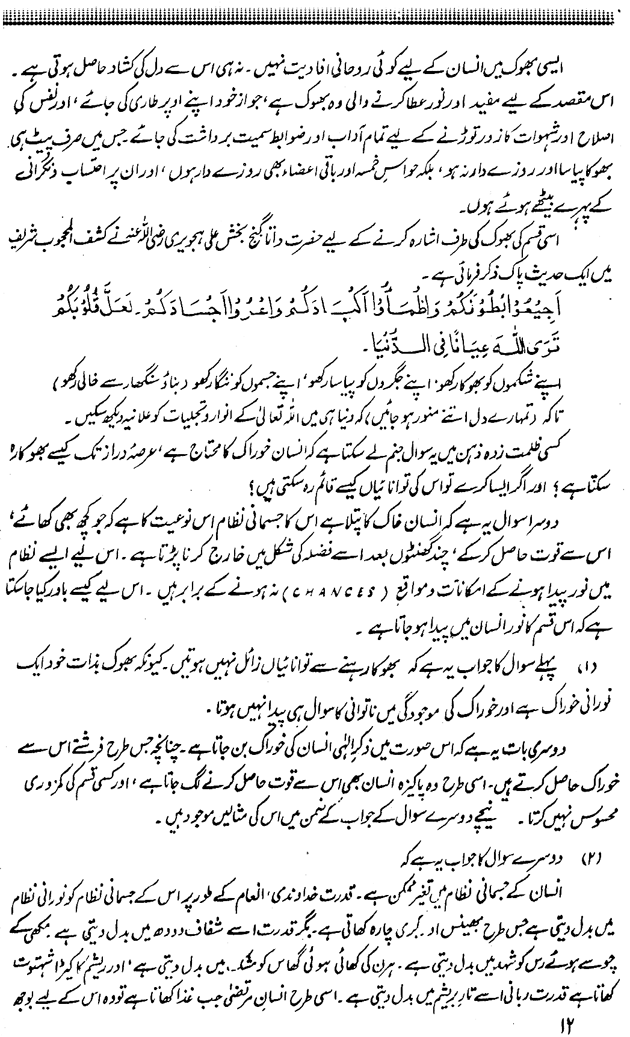 ایسی بھوک میں انسان کے لیے کوئی روحانی افادیت نہیں۔ نہ ہی اس سے دل کی کشاد حاصل ہوتی ہے۔
اس مقصد کے لیے مفید اور نور عطا کرنے والی وہ بھوک ہے، جو از خود اپنے اوپر طاری کی جائے، اور نفس کی
اصلاح اور شہوات کا زور توڑنے کے لیے تمام آداب اور ضوابط سمیت برداشت کی جائے جس میں صرف پیٹ ہی
بھوکا پیاسا اور روزے دار نہ ہو، بلکہ حواس خمسہ اور باقی اعضاء بھی روزے دار ہوں، اور ان پر احتساب و نگرانی
کے پہرے بیٹھے ہوئے ہوں۔
اسی قسم کی بھوک کی طرف اشارہ کرنے کے لیے حضرت داتا گنج بخش علی ہجویری رضی اللہ عنہ نے کشف المحجوب شریف
میں ایک حدیث پاک ذکر فرمائی ہے۔
اَجِیْعُوْا بُطُوْنَکُمْ وَاظْمَأُوْا اَکْبَادَکُمْ وَاعْرُوا اَجْسَادَکُمْ۔ لَعَلَّ قُلُوْبَکُمْ
تَرَی اللّٰہَ عِیَانًا فِی الدُّنْیَا۔
اپنے شکموں کو بھوکا رکھو، اپنے جگروں کو پیاسا رکھو، اپنے جسموں کو ننگا رکھو (بناؤ سنگھار سے خالی رکھو)
تاکہ (تمہارے دل اتنے منور ہو جائیں، کہ دنیا ہی میں اللہ تعالیٰ کے انوار و تجلیات کو علانیہ دیکھ سکیں۔
کسی ظلمت زدہ ذہن میں یہ سوال جنم لے سکتا ہے کہ انسان خوراک کا محتاج ہے، عرصۂ دراز تک کیسے بھوکا رہ
سکتا ہے؟ اور اگر ایسا کرے تو اس کی توانائیاں کیسے قائم رہ سکتی ہیں؟
دوسرا سوال یہ ہے کہ انسان خاک کا پتلا ہے اس کا جسمانی نظام اس نوعیت کا ہے کہ جو کچھ بھی کھائے،
اس سے قوت حاصل کر کے، چند گھنٹوں بعد اسے فضلہ کی شکل میں خارج کرنا پڑتا ہے۔ اس لیے ایسے نظام
میں نور پیدا ہونے کے امکانات و مواقع (CHANCES) نہ ہونے کے برابر ہیں۔ اس لیے کیسے باور کیا جا سکتا
ہے کہ اس قسم کا نور انسان میں پیدا ہو جاتا ہے۔
(۱) پہلے سوال کا جواب یہ ہے کہ بھوکا رہنے سے توانائیاں زائل نہیں ہوتیں۔ کیونکہ بھوک بذات خود ایک
نورانی خوراک ہے اور خوراک کی موجودگی میں ناتوانی کا سوال ہی پیدا نہیں ہوتا۔
دوسری بات یہ ہے کہ اس صورت میں ذکر الٰہی انسان کی خوراک بن جاتا ہے۔ چنانچہ جس طرح فرشتے اس سے
خوراک حاصل کرتے ہیں۔ اسی طرح وہ پاکیزہ انسان بھی اس سے قوت حاصل کرنے لگ جاتا ہے، اور کسی قسم کی کمزوری
محسوس نہیں کرتا۔ نیچے دوسرے سوال کے جواب کے ضمن میں اس کی مثالیں موجود ہیں۔
(۲) دوسرے سوال کا جواب یہ ہے کہ
انسان کے جسمانی نظام میں تغیر ممکن ہے۔ قدرت خداوندی، انعام کے طور پر اس کے جسمانی نظام کو نورانی نظام
میں بدل دیتی ہے جس طرح بھینس اور بکری چارہ کھاتی ہے۔ مگر قدرت اسے شفاف دودھ میں بدل دیتی ہے مکھی کے
چوسے ہوئے رس کو شہد میں بدل دیتی ہے۔ ہرن کی کھائی ہوئی گھاس کو مشک میں بدل دیتی ہے، اور ریشم کا کیڑا شہتوت
کھاتا ہے قدرت ربانی اسے تار ریشم میں بدل دیتی ہے۔ اسی طرح انسان مرتضیٰ جب غذا کھاتا ہے تو وہ اس کے لیے بوجھ
۱۲